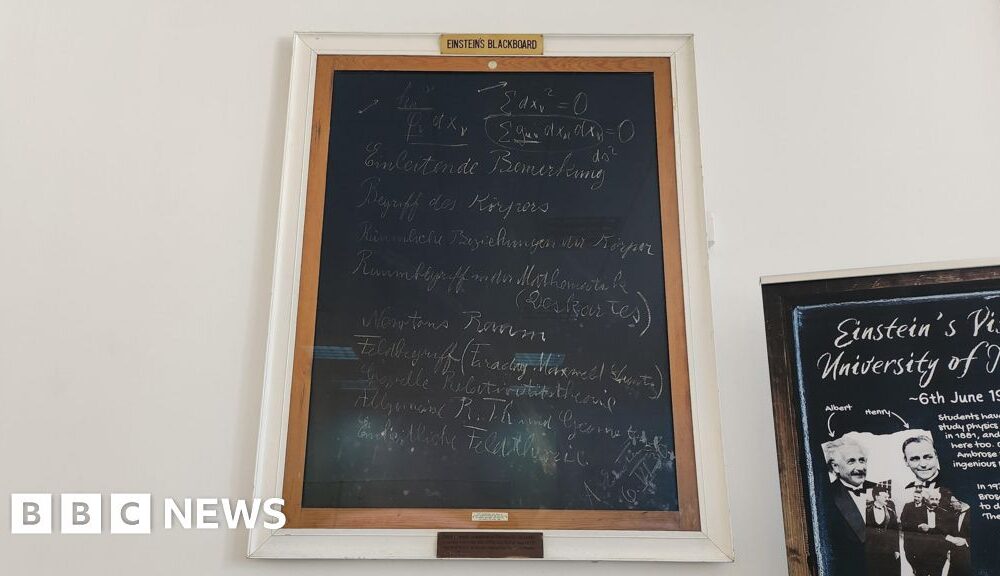 EINSTEIN'S BLACKBOARD
Σ dx_ν² = 0
dx_ν
Σ g_μν dx_μ dx_ν = 0
ds²
Einleitende Bemerkung
Begriff des Körpers
Räumliche Beziehungen der Körper
Raumbegriff in der Mathematik
(Deskartes)
Newtons Raum
Feldbegriff (Faraday Maxwell
Spezielle Relativitätstheorie
Allgemeine R. Th und Geometrie
Einheitliche Feldtheorie.
Einstein's
University of
~6th June
Albert
Henry
Students
study physics
in 1881, and
here too.
Ambrose
ingenious
In
to
BBC NEWS